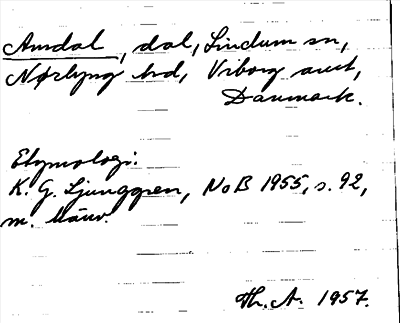 Amdal, dal, Lindum sn,
Nørlyng hrd, Viborg amt,
Danmark.
Etymologi:
K. G. Ljunggren, NoB 1955, s. 92,
m. hänv.
Th. A. 1957.